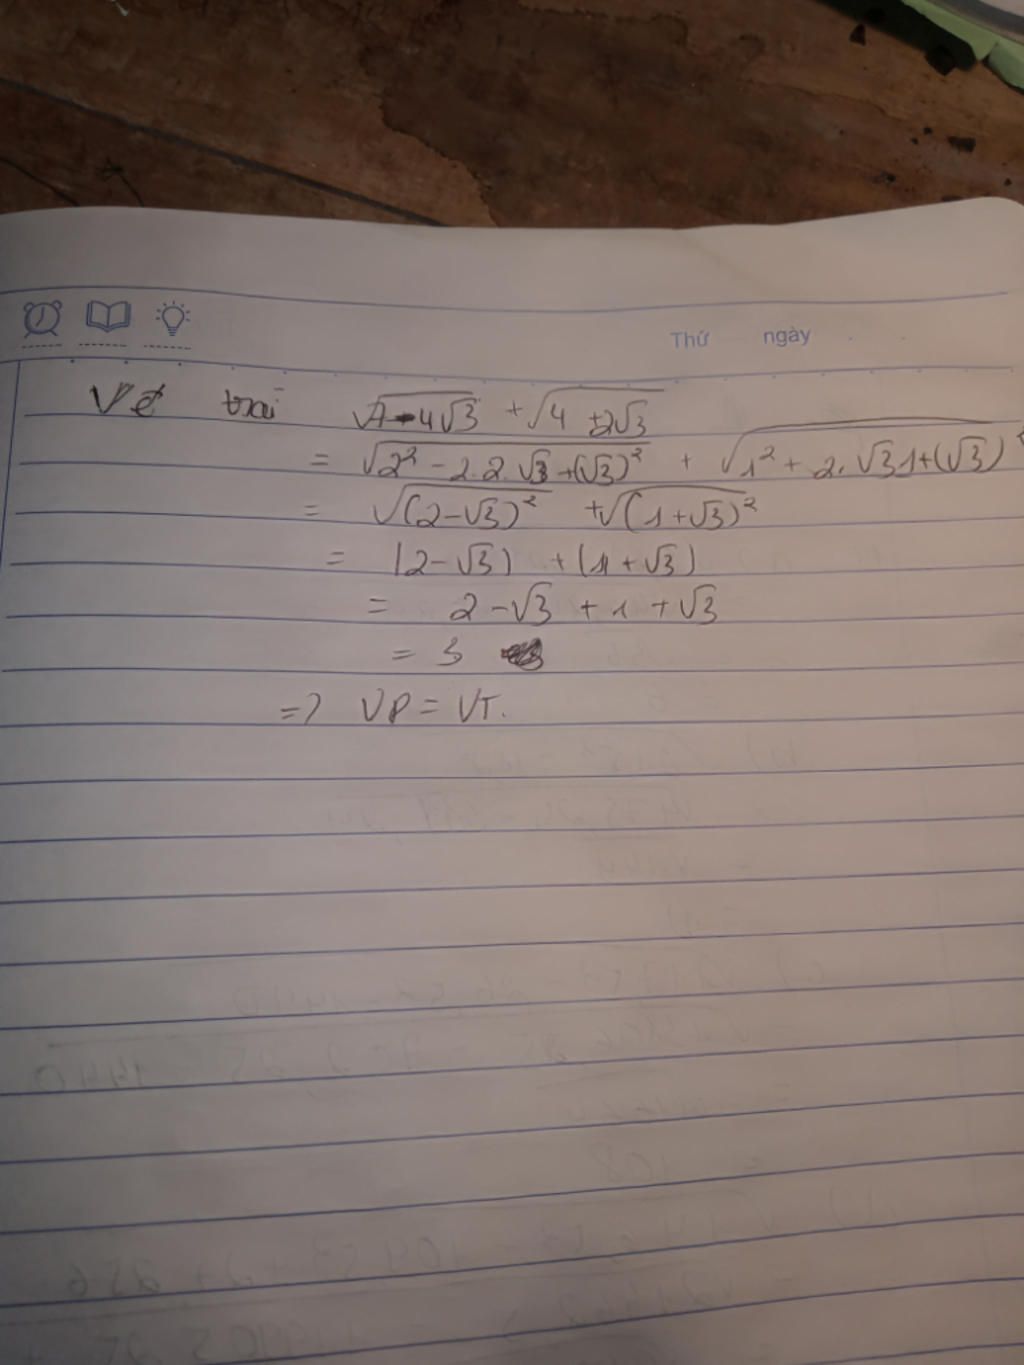 Thứ ngày
Vế trái √7-4√3 + √4 +2√3
= √2² - 2.2.√3 +(√3)² + √1² + 2.√3 1+(√3)²
= √(2-√3)² +√(1+√3)²
= |2-√3| + |1+√3|
= 2-√3 + 1 + √3
= 3
=> VP = VT.